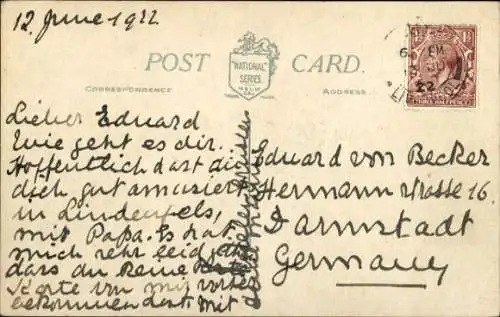 12 June 1922
POST CARD.
"NATIONAL"
SERIES
CORRESPONDENCE
ADDRESS
THREE HALF PENCE
Lieber Eduard
Wie geht es dir.
Hoffentlich dast du
dich gut amusiert
in Lindenfels,
mit Papa. Es hat
mich sehr leid
dass du keine
Karte von mir vorher
bekommen dast. mit
Eduard von Becker
Hermann strasse 16.
Darmstadt
Germany